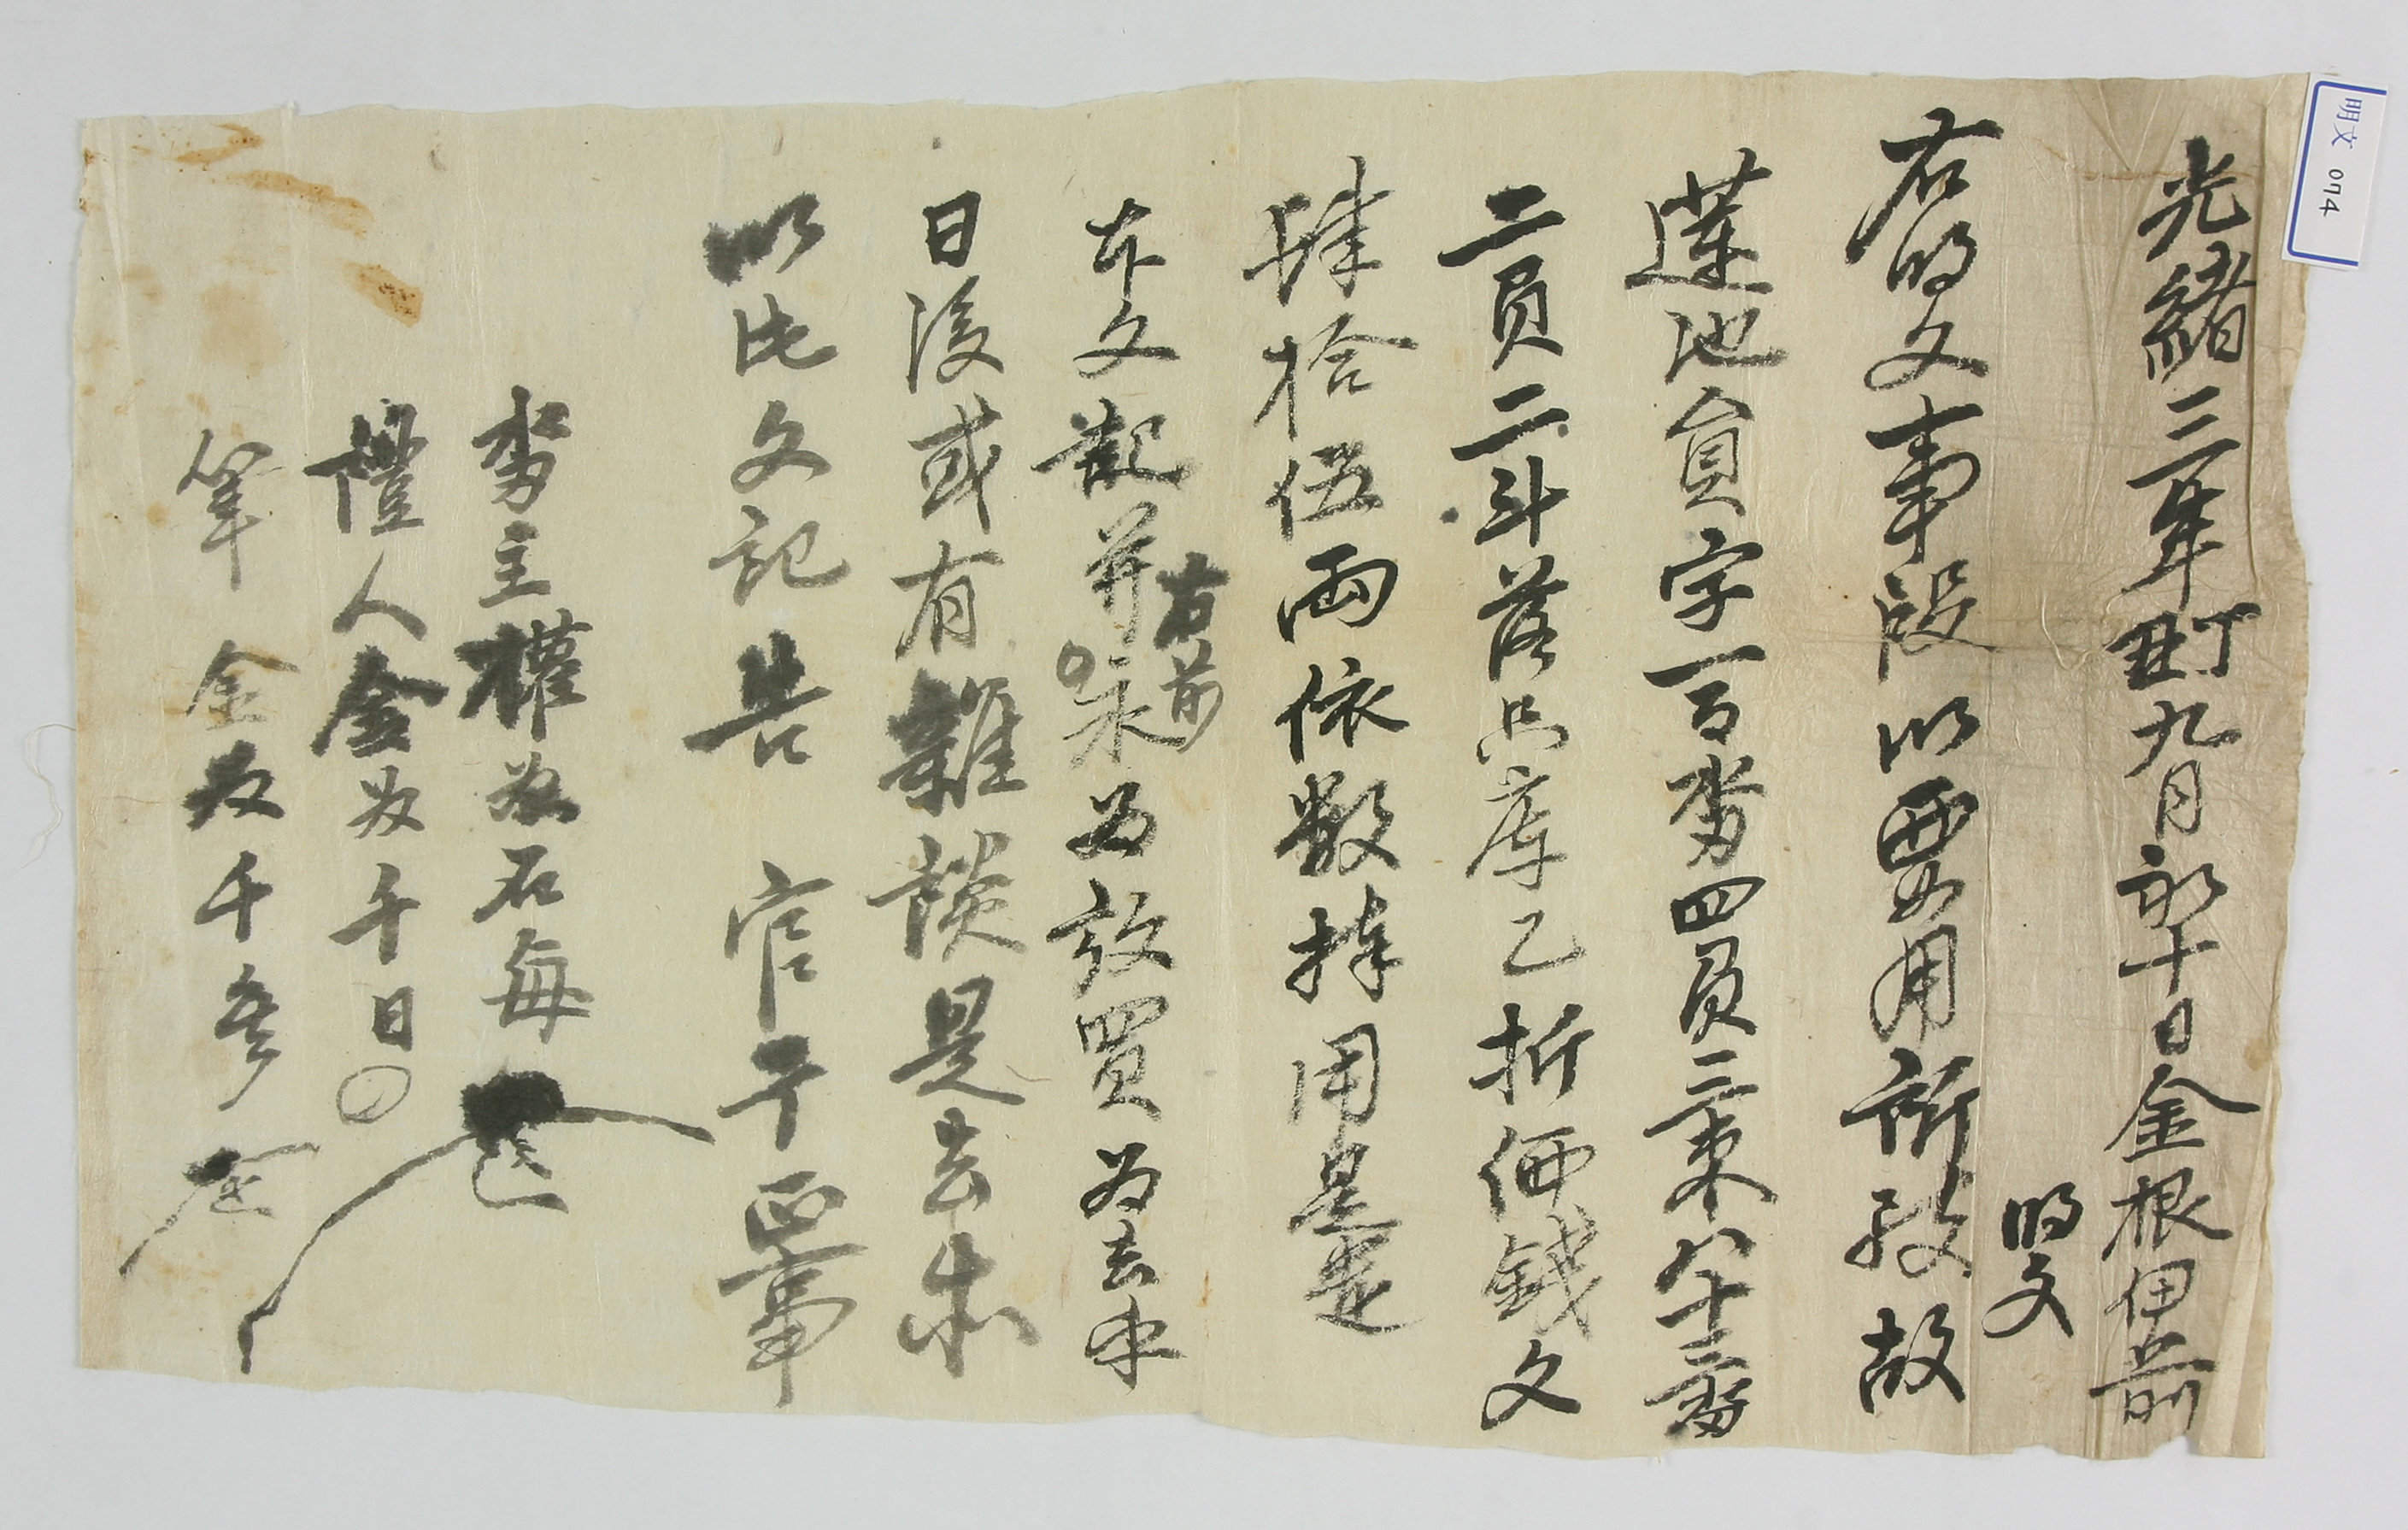 光緖三年丁丑九月初十日金根伊前
明文
右明文事段以要用所致故
蓮池員字一百畓四員三束八十三畓
二員二斗落只庫乙折価錢文
肆拾伍両依數捧用是遣
本文記并以右前
永爲放買爲去乎
日後或有雜談是去等
以此文記告 官卞正事
畓主權 石每
證人金 千日
筆 金 千
明文 074